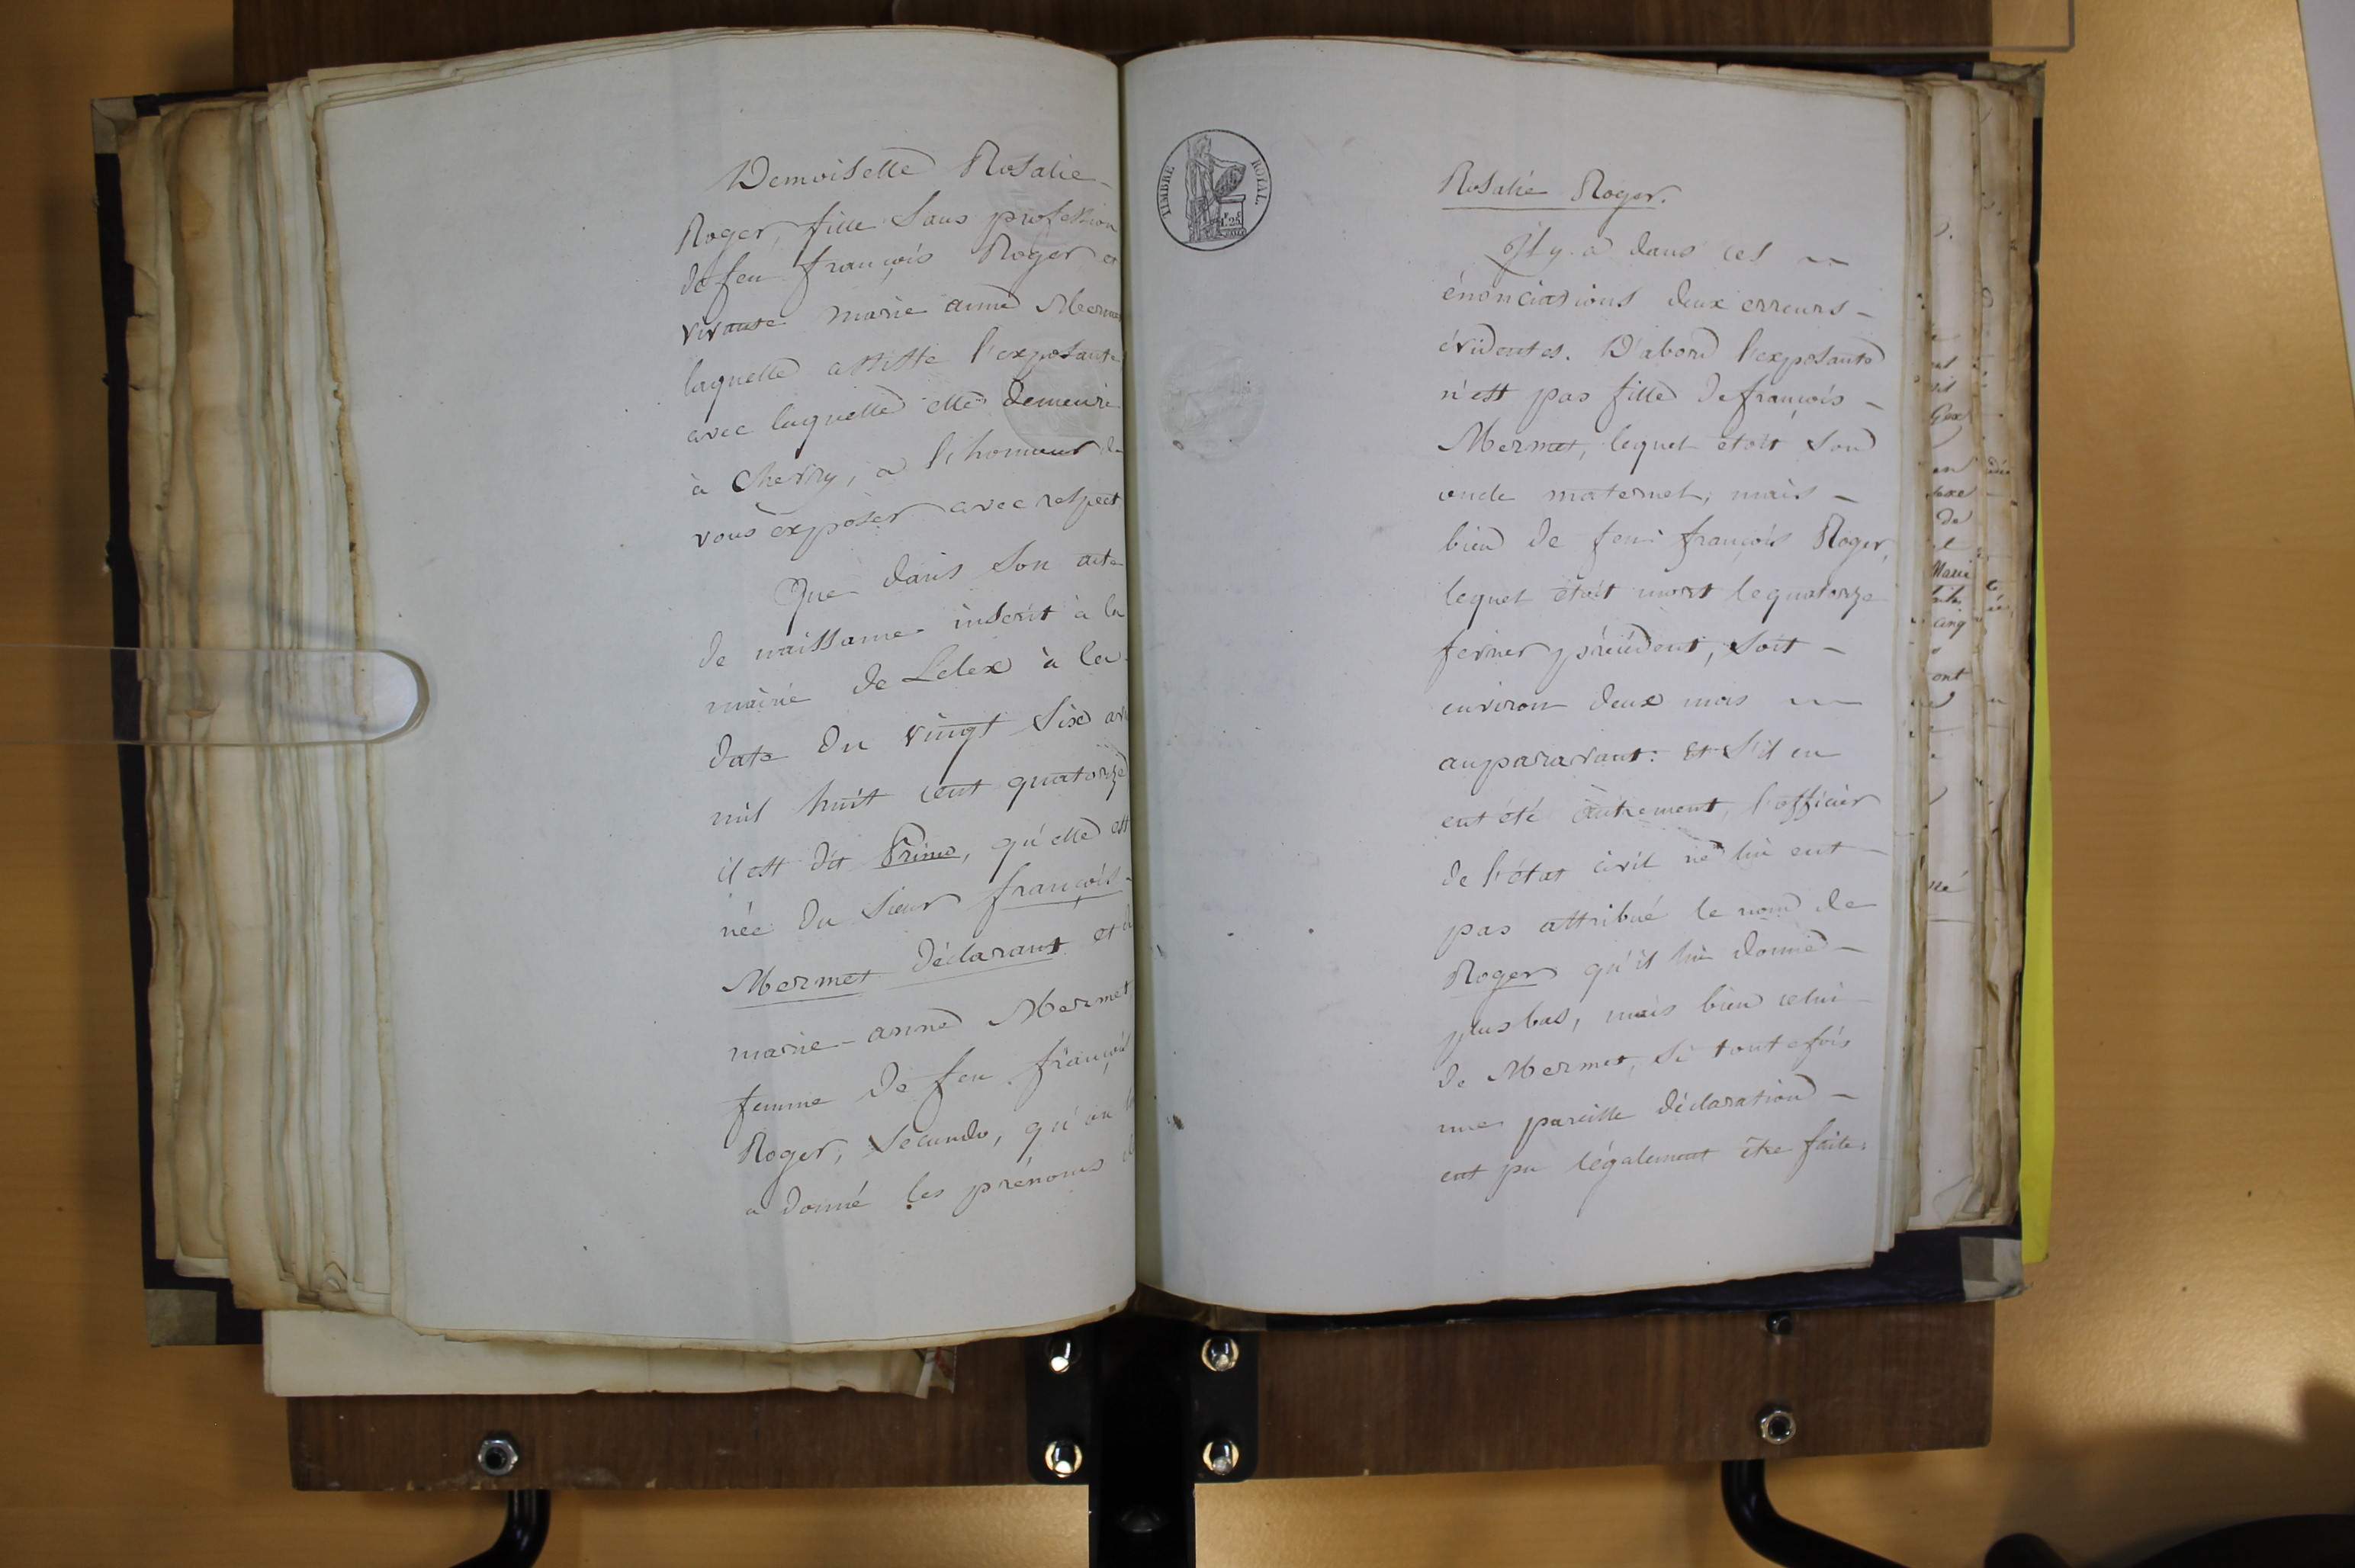 Demoiselle Rosalie
Roger, fille sans profession
de feu françois Roger et
vivante marie anne Mermet
laquelle assiste l'exposante
avec laquelle elle demeure
à Chevry, a l'honneur de
vous exposer avec respect
Que dans son acte
de naissance inscrit à la
mairie de Lelex à la
date du vingt six avril
mil huit cent quatorze
il est dit Primo, qu'elle est
née du sieur françois
Mermet déclarant et de
marie-anne Mermet
femme de feu françois
Roger, Secundo, qu'on lui
a donné les prénoms de
TIMBRE ROYAL
Rosalie Roger.
Il y a dans ces
énonciations deux erreurs
évidentes. D'abord l'exposante
n'est pas fille de françois
Mermet, lequel étoit son
oncle maternel; mais
bien de feu françois Roger,
lequel étoit mort le quatorze
fevrier précédent, soit
environ deux mois
auparavant: Et s'il en
eut été autrement, l'officier
de l'état civil ne lui eut
pas attribué le nom de
Roger qu'il lui donne
plus bas, mais bien celui
de Mermet, si toutefois
une pareille déclaration
eut pu légalement être faite.
Gex
sexe
de
Marie
cinq
ont